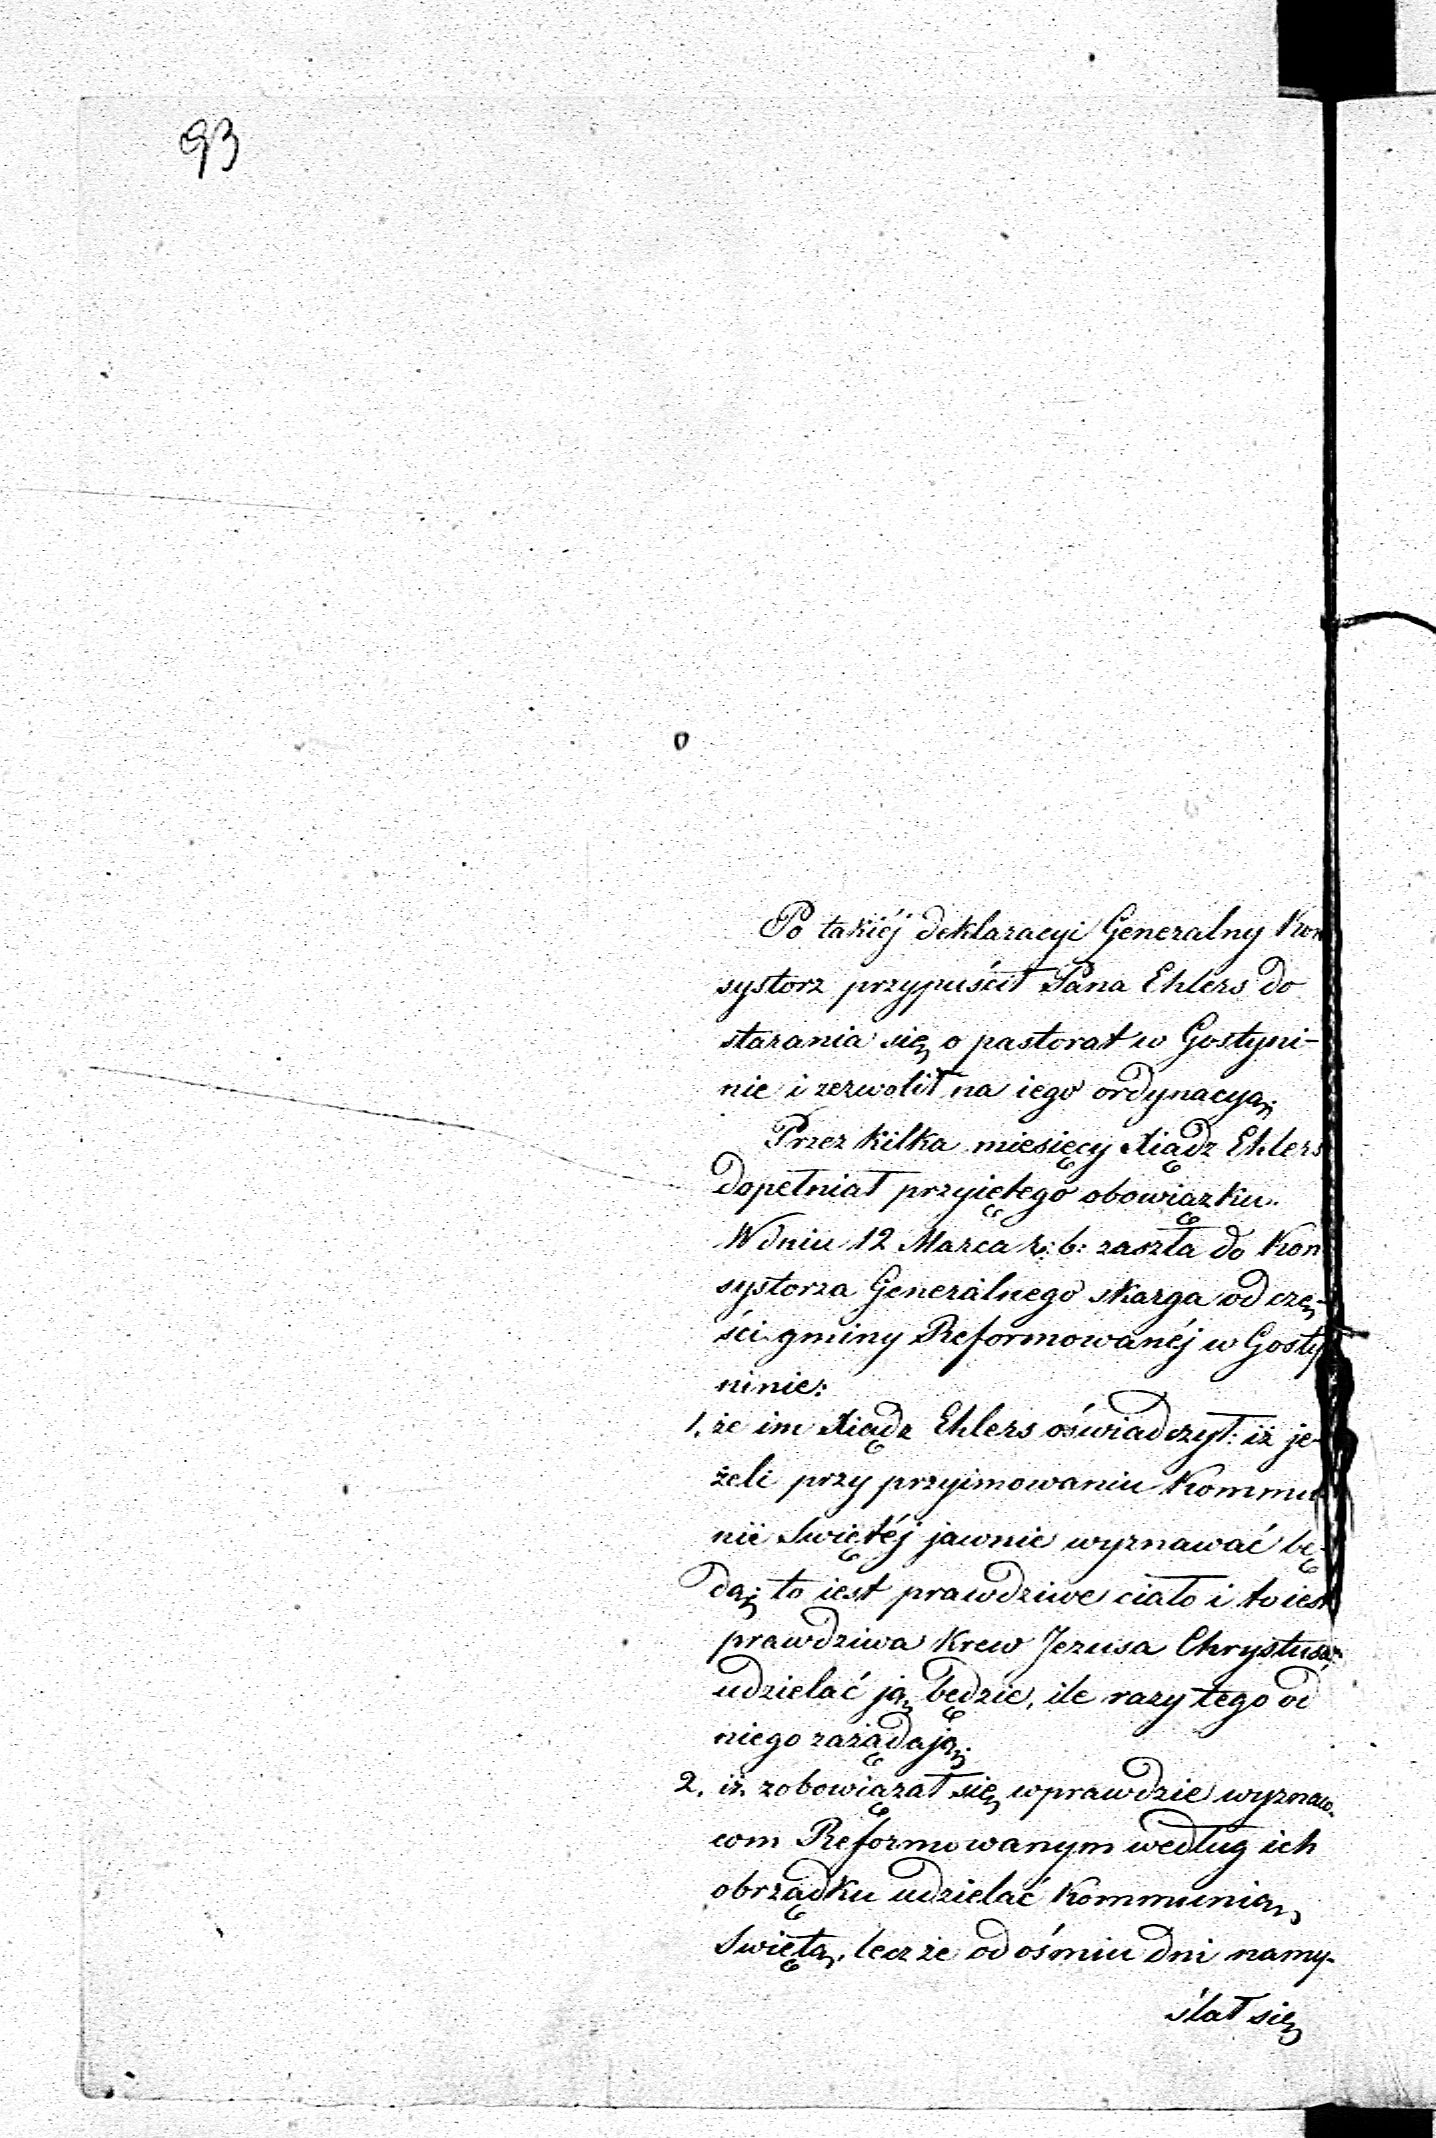 93
Po takiéj deklaracyi Generalny Kon
systorz przypuścił Pana Ehlers do
starania się o pastorat w Gostyni-
nie i zezwolił na iego ordynacyą.
Przez kilka miesięcy Xiądz Ehlers
dopełniał przyiętego obowiązku.
W dniu 12 Marca r: b: zaszła do Kon
systorza Generalnego skarga od czę-
ści gminy Reformowanéj w Gosty
ninie:
1. że im Xiądz Ehlers oświadczył: iż je-
żeli przy przyimowaniu Kommu
nii Swiętéj jawnie wyznawać bę-
dą; to iest prawdziwe ciało i to iest
prawdziwa Krew Jezusa Chrystusa,
udzielać ją będzie, ile razy tego od
niego zażądają;
2. iż zobowiązał się wprawdzie wyznaw-
com Reformowanym według ich
obrządku udzielać Kommunią
Swiętą, lecz że od ośmiu dni namy-
ślał się